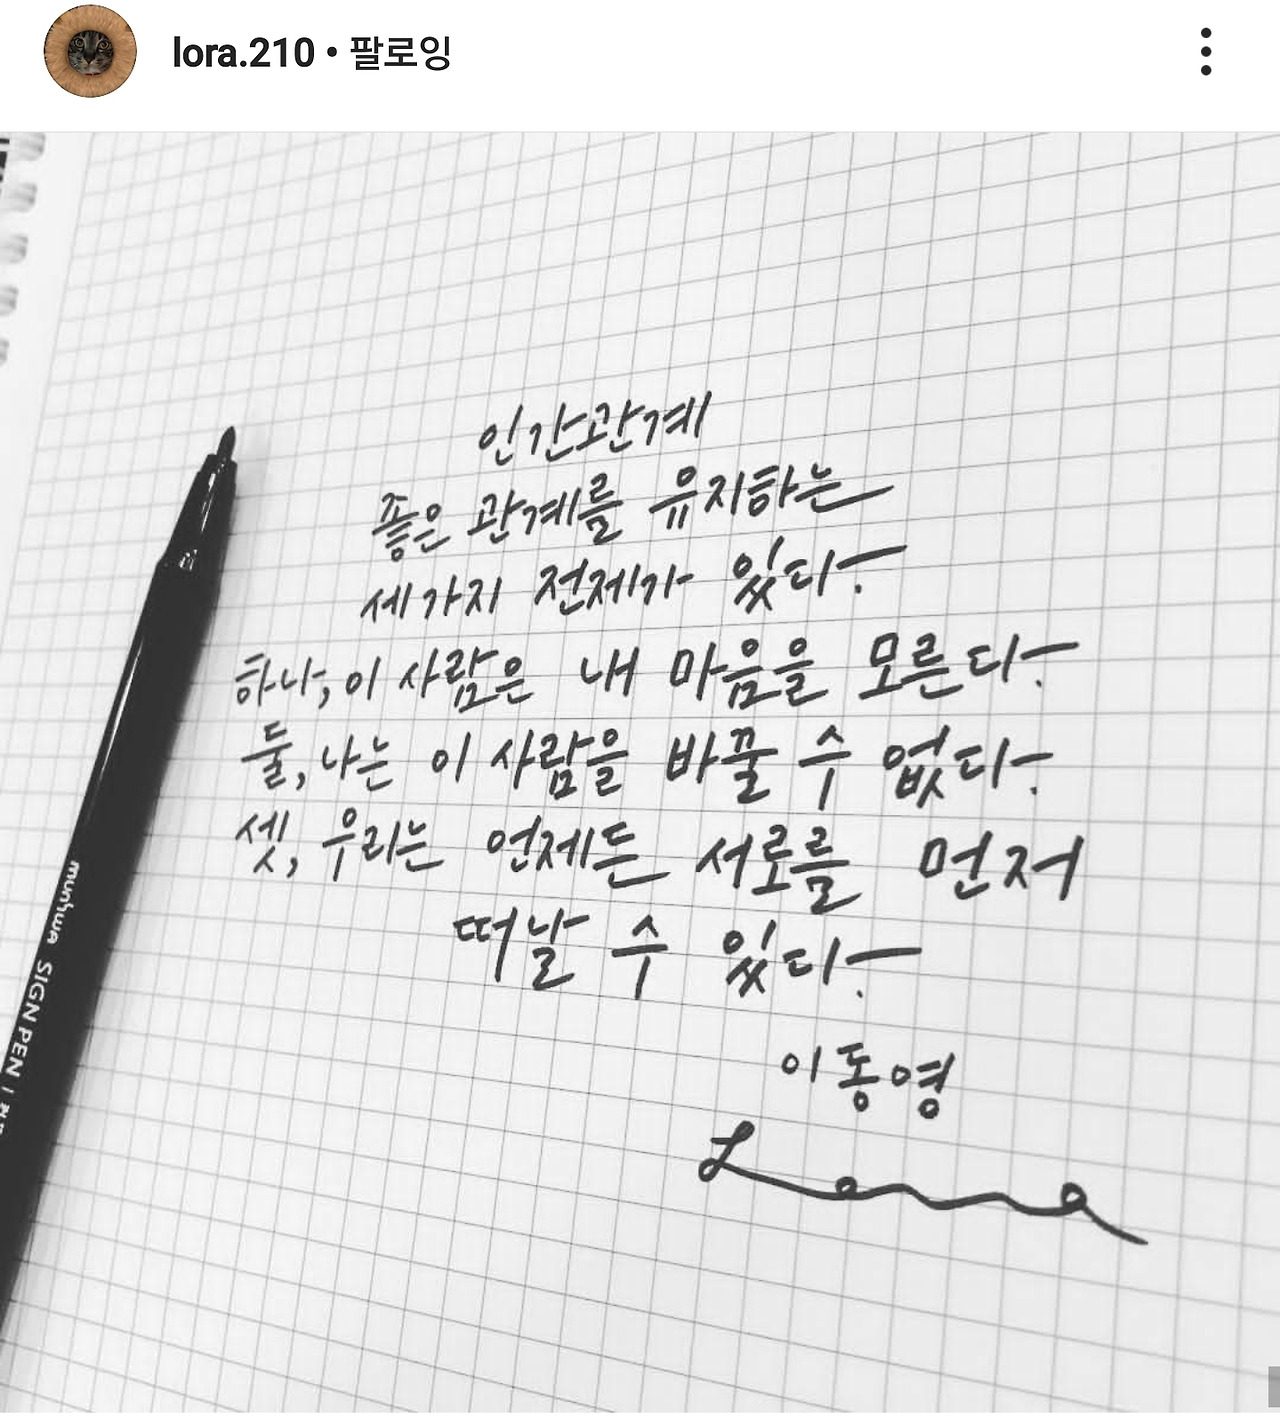 lora.210 • 팔로잉
인간관계
좋은 관계를 유지하는
세가지 전제가 있다.
하나, 이 사람은 내 마음을 모른다.
둘, 나는 이 사람을 바꿀 수 없다.
셋, 우리는 언제든 서로를 먼저
떠날 수 있다.
이동영
Lora
munhwa SIGN PEN